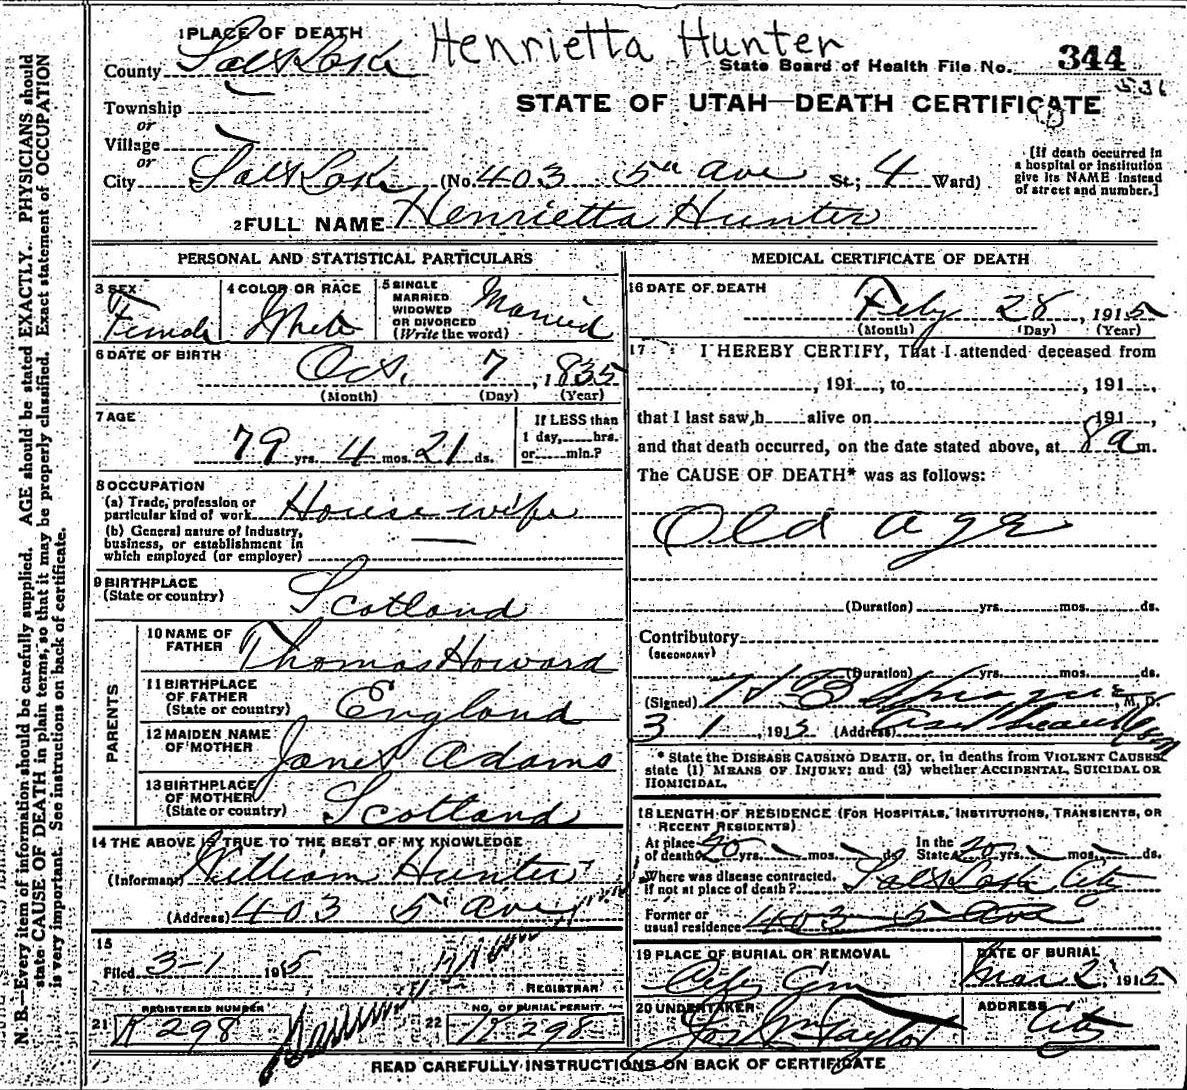 Henrietta Hunter
1 PLACE OF DEATH
County Salt Lake
State Board of Health File No. 344
536
Township
or
Village
or
STATE OF UTAH—DEATH CERTIFICATE
City Salt Lake (No. 403 5th Ave St.; 4 Ward)
[If death occurred in
a hospital or institution
give its NAME instead
of street and number.]
2 FULL NAME Henrietta Hunter
PERSONAL AND STATISTICAL PARTICULARS
3 SEX
Female
4 COLOR OR RACE
White
5 SINGLE
MARRIED
WIDOWED
OR DIVORCED
(Write the word)
Married
6 DATE OF BIRTH
Oct. 7, 1835
(Month) (Day) (Year)
7 AGE
79 yrs. 4 mos. 21 ds.
If LESS than
1 day, hrs.
or min.?
8 OCCUPATION
(a) Trade, profession or
particular kind of work House wife
(b) General nature of industry,
business, or establishment in
which employed (or employer)
9 BIRTHPLACE
(State or country)
Scotland
PARENTS
10 NAME OF
FATHER
Thomas Howard
11 BIRTHPLACE
OF FATHER
(State or country)
England
12 MAIDEN NAME
OF MOTHER
Janet Adams
13 BIRTHPLACE
OF MOTHER
(State or country)
Scotland
14 THE ABOVE IS TRUE TO THE BEST OF MY KNOWLEDGE
(Informant) William Hunter
(Address) 403 5 Ave
15
Filed 3-1 1915
REGISTRAR
REGISTERED NUMBER
21 K 298
NO. OF BURIAL PERMIT
22 K 298
MEDICAL CERTIFICATE OF DEATH
16 DATE OF DEATH
Feby 28, 1915
(Month) (Day) (Year)
17 I HEREBY CERTIFY, That I attended deceased from
, 191 , to , 191 ,
that I last saw h alive on 191 ,
and that death occurred, on the date stated above, at 8 a m.
The CAUSE OF DEATH* was as follows:
Old age
(Duration) yrs. mos. ds.
Contributory
(SECONDARY)
(Duration) yrs. mos. ds.
(Signed) H B Sprague, M. D.
3 1, 1915 (Address)
* State the DISEASE CAUSING DEATH, or, in deaths from VIOLENT CAUSES,
state (1) MEANS OF INJURY; and (2) whether ACCIDENTAL, SUICIDAL OR
HOMICIDAL.
18 LENGTH OF RESIDENCE (FOR HOSPITALS, INSTITUTIONS, TRANSIENTS, OR
RECENT RESIDENTS)
At place
of death 20 yrs. mos. ds.
In the
State 20 yrs. mos. ds.
Where was disease contracted,
If not at place of death? Salt Lake City
Former or
usual residence 403 5 Ave
19 PLACE OF BURIAL OR REMOVAL
City Cem
DATE OF BURIAL
Mar 2, 1915
20 UNDERTAKER
Jos Wm Taylor
ADDRESS
City
READ CAREFULLY INSTRUCTIONS ON BACK OF CERTIFICATE
N. B.—Every item of information should be carefully supplied. AGE should be stated EXACTLY. PHYSICIANS should
state CAUSE OF DEATH in plain terms, so that it may be properly classified. Exact statement of OCCUPATION
is very important. See instructions on back of certificate.